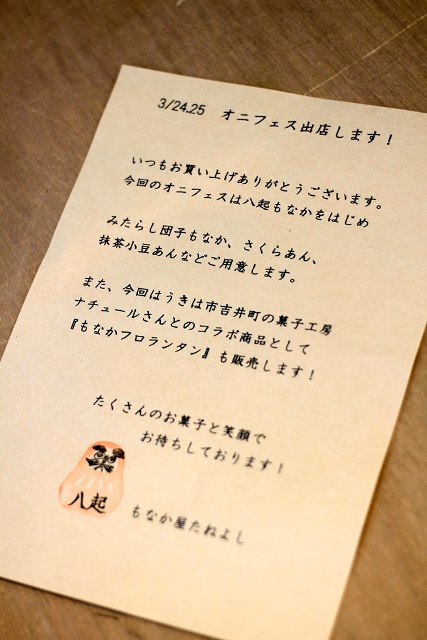 3/24.25 オニフェス出店します！
いつもお買い上げありがとうございます。
今回のオニフェスは八起もなかをはじめ
みたらし団子もなか、さくらあん、
抹茶小豆あんなどご用意します。
また、今回はうきは市吉井町の菓子工房
ナチュールさんとのコラボ商品として
『もなかフロランタン』も販売します！
たくさんのお菓子と笑顔で
お待ちしております！
八起
もなか屋たねよし